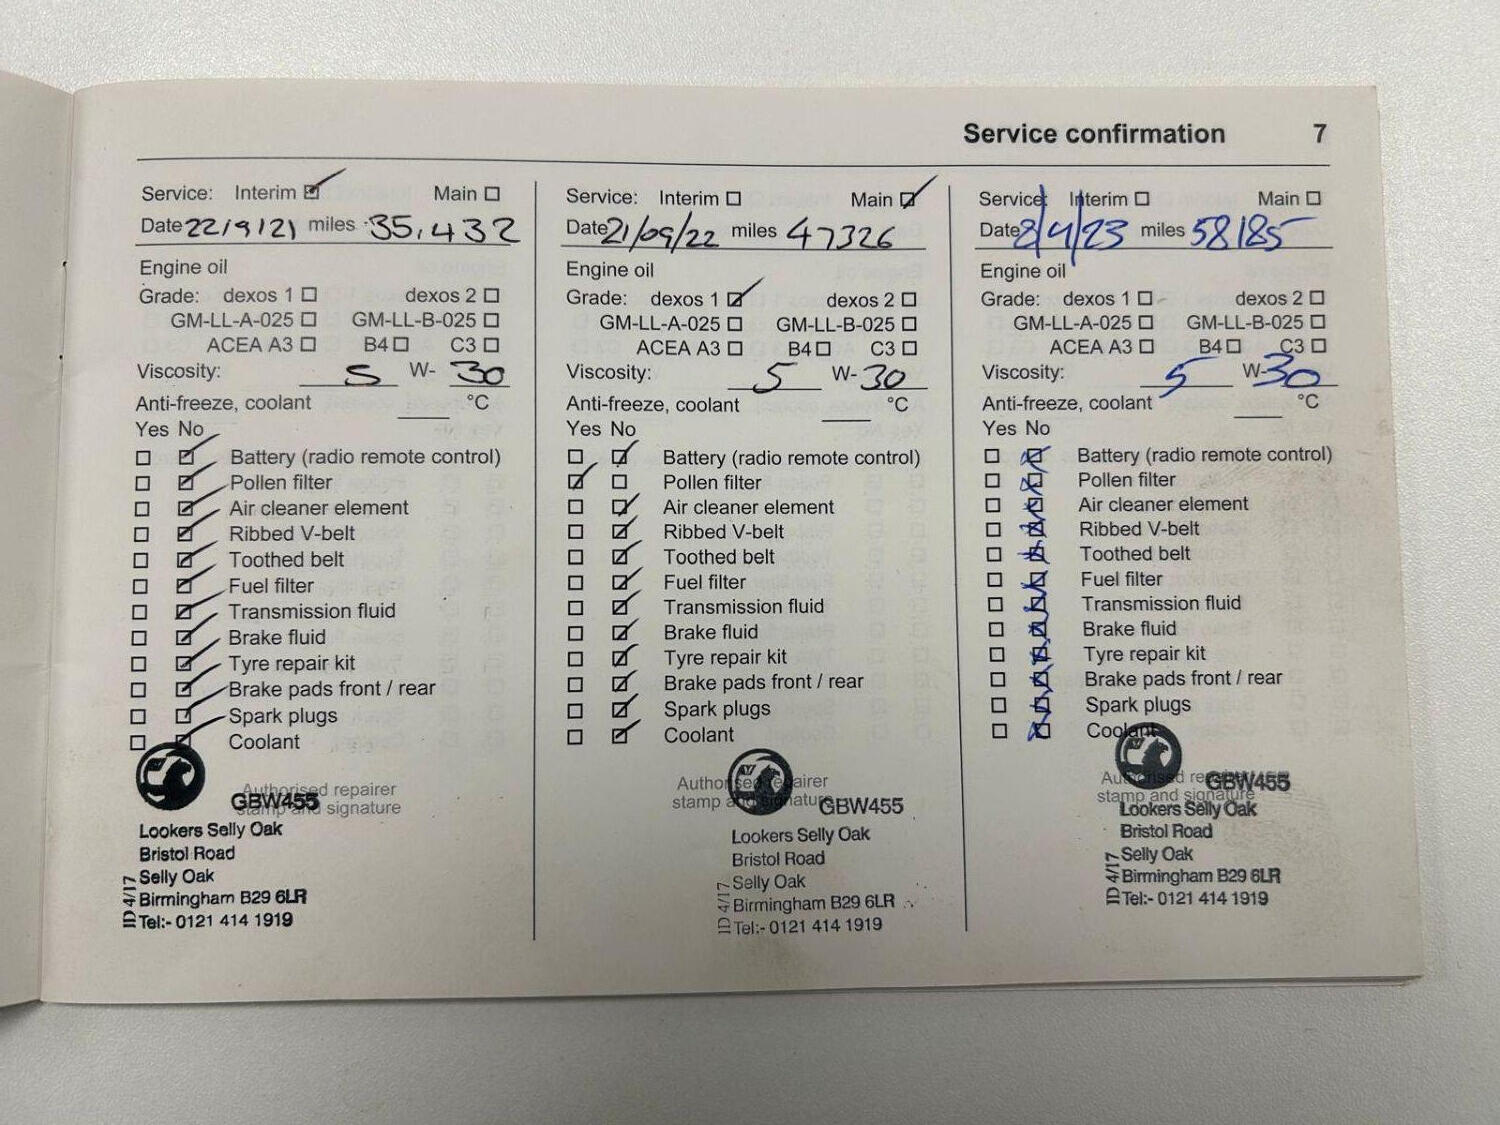 Service confirmation 7
Service: Interim Main
Date 22/9/21 miles 35,432
Engine oil
Grade: dexos 1 dexos 2
GM-LL-A-025 GM-LL-B-025
ACEA A3 B4 C3
Viscosity: 5 W- 30
Anti-freeze, coolant °C
Yes No
Battery (radio remote control)
Pollen filter
Air cleaner element
Ribbed V-belt
Toothed belt
Fuel filter
Transmission fluid
Brake fluid
Tyre repair kit
Brake pads front / rear
Spark plugs
Coolant
Authorised repairer
stamp and signature
GBW455
Lookers Selly Oak
Bristol Road
Selly Oak
Birmingham B29 6LR
Tel:- 0121 414 1919
ID 4/17
Service: Interim Main
Date 21/09/22 miles 47326
Engine oil
Grade: dexos 1 dexos 2
GM-LL-A-025 GM-LL-B-025
ACEA A3 B4 C3
Viscosity: 5 W- 30
Anti-freeze, coolant °C
Yes No
Battery (radio remote control)
Pollen filter
Air cleaner element
Ribbed V-belt
Toothed belt
Fuel filter
Transmission fluid
Brake fluid
Tyre repair kit
Brake pads front / rear
Spark plugs
Coolant
Authorised repairer
stamp and signature
GBW455
Lookers Selly Oak
Bristol Road
Selly Oak
Birmingham B29 6LR
Tel:- 0121 414 1919
ID 4/17
Service: Interim Main
Date 8/4/23 miles 58185
Engine oil
Grade: dexos 1 dexos 2
GM-LL-A-025 GM-LL-B-025
ACEA A3 B4 C3
Viscosity: 5 W- 30
Anti-freeze, coolant °C
Yes No
Battery (radio remote control)
Pollen filter
Air cleaner element
Ribbed V-belt
Toothed belt
Fuel filter
Transmission fluid
Brake fluid
Tyre repair kit
Brake pads front / rear
Spark plugs
Coolant
Authorised repairer
stamp and signature
GBW455
Lookers Selly Oak
Bristol Road
Selly Oak
Birmingham B29 6LR
Tel:- 0121 414 1919
ID 4/17